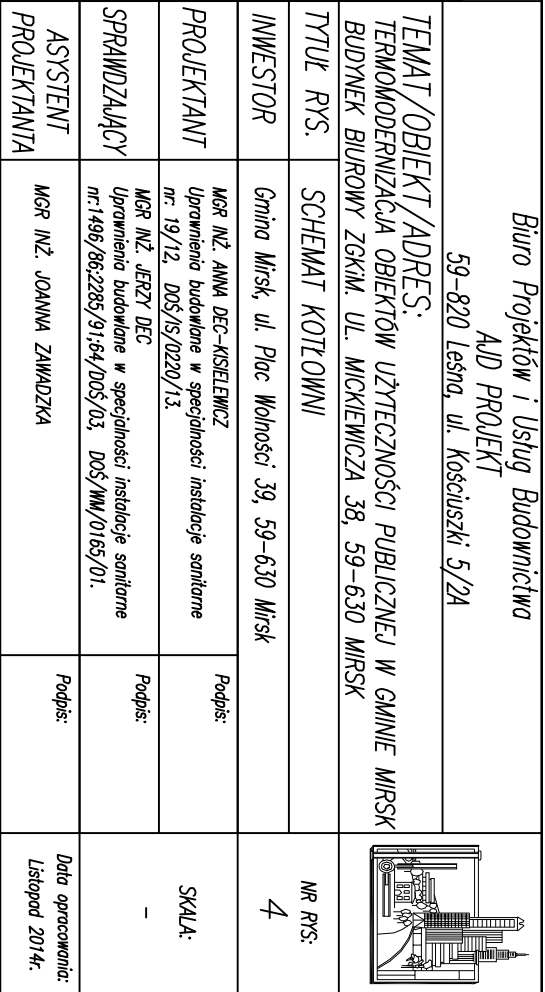 Biuro Projektów i Usług Budownictwa
AJD PROJEKT
59-820 Leśna, ul. Kościuszki 5/2A
TEMAT/OBIEKT/ADRES:
TERMOMODERNIZACJA OBIEKTÓW UŻYTECZNOŚCI PUBLICZNEJ W GMINIE MIRSK
BUDYNEK BIUROWY ZGKiM. UL. MICKIEWICZA 38, 59-630 MIRSK
TYTUŁ RYS.
SCHEMAT KOTŁOWNI
NR RYS:
4
INWESTOR
Gmina Mirsk, ul. Plac Wolności 39, 59-630 Mirsk
PROJEKTANT
MGR INŻ. ANNA DEC-KISIELEWICZ
Uprawnienia budowlane w specjalności instalacje sanitarne
nr. 19/12, DOŚ/IS/0220/13.
Podpis:
SKALA:
-
SPRAWDZAJĄCY
MGR INŻ. JERZY DEC
Uprawnienia budowlane w specjalności instalacje sanitarne
nr.1496/86;2285/91;64/DOŚ/03, DOŚ/WM/0165/01.
Podpis:
ASYSTENT
PROJEKTANTA
MGR INŻ. JOANNA ZAWADZKA
Podpis:
Data opracowania:
Listopad 2014r.